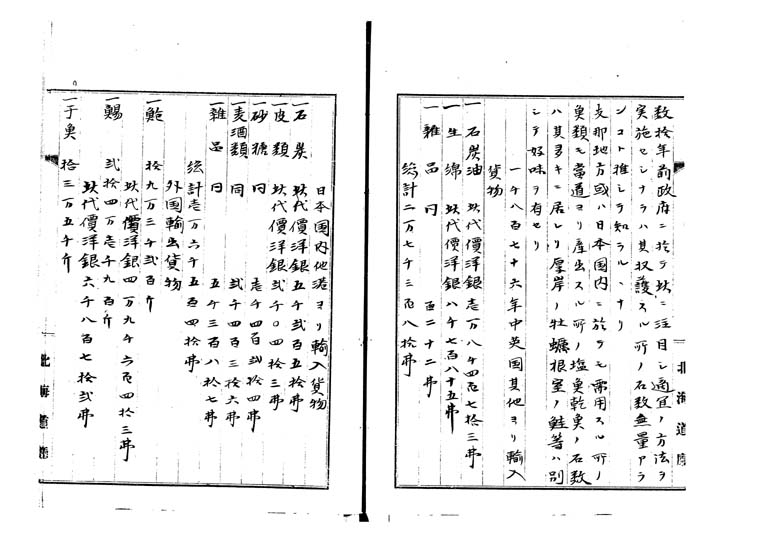 数拾年前政府ニ於テ玆ニ注目シ適宜ノ方法ヲ
実施セシナラハ其収護スル所ノ石数無量ナラ
ンコト推シテ知ラルヽナリ
支那地方或ハ日本国内ニ於テモ需用スル所ノ
魚類モ当道ヨリ産出スル所ノ塩魚乾魚ノ石数
ハ其多キニ居レリ厚岸ノ牡蠣根室ノ鮭等ハ別
シテ好味ヲ有セリ
一千八百七十六年中英国其他ヨリ輸入
貨物
一石炭油 玆代價洋銀壱万八千四百七拾三弗
一生綿 玆代價洋銀八千七百八十五弗
一雑品 同 百二十二弗
総計二万七千三百八拾弗
北海道庁
日本国内他港ヨリ輸入貨物
一石炭 玆代價洋銀五千弐百五拾弗
一皮類 玆代價洋銀弐千〇四拾三弗
一砂糖 同 壱千四百弐拾四弗
一麦酒類 同 弐千四百三拾六弗
一雑品 同 五千三百八拾七弗
総計壱万六千五百四拾弗
外国輸出貨物
一鮑 拾九万三千弐百斤
玆代價洋銀四万九千六百四拾三弗
一鯣 弐拾四万壱千九百斤
玆代價洋銀六千八百七拾弐弗
一干魚 拾三万五千斤
北海道庁